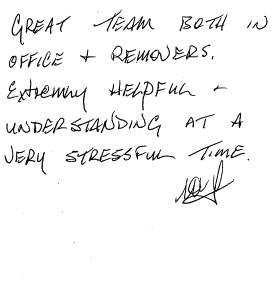 GREAT TEAM BOTH IN
OFFICE + REMOVERS.
Extremly HELPFUL +
UNDERSTANDING AT A
VERY STRESSFUL TIME.